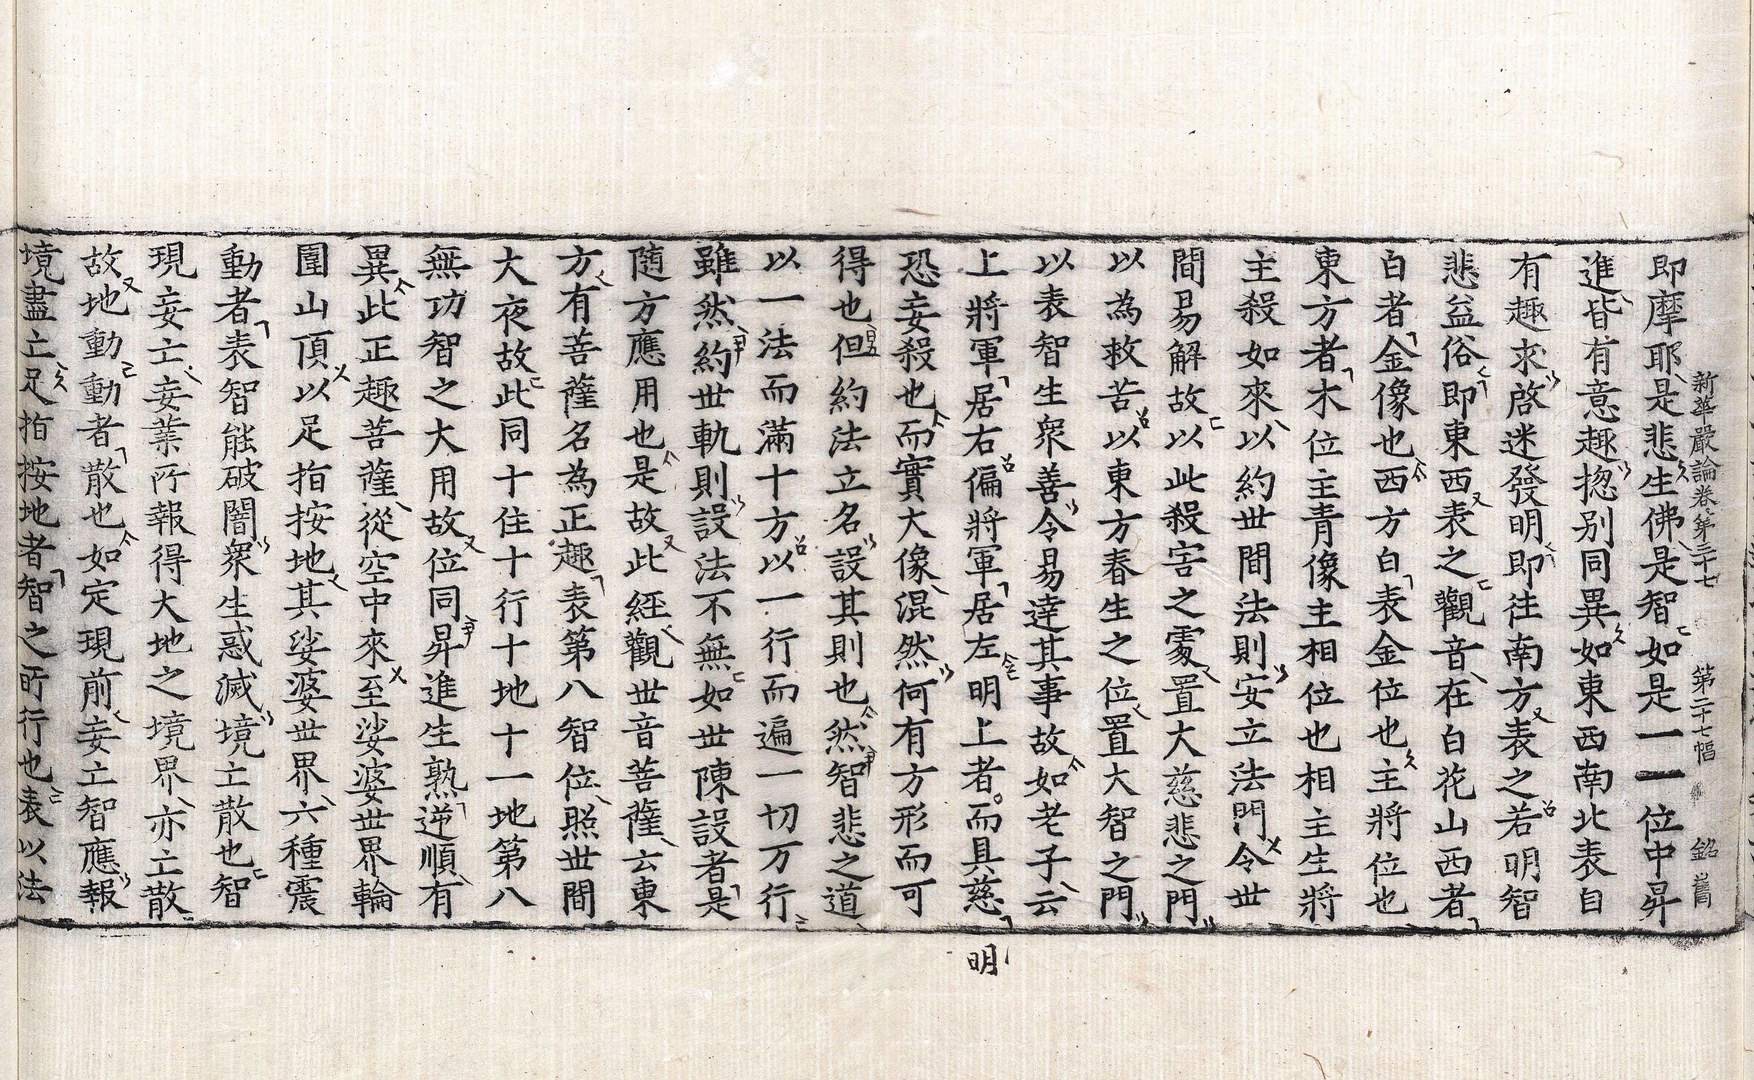 新華嚴論卷第三十七 第二十七幅 銘舊
即摩耶是悲生佛是智如是一一位中昇
進皆有意趣揔別同異如東西南北表自
有趣求啓迷發明即往南方表之若明智
悲益俗即東西表之觀音在白花山西者
白者金像也西方白表金位也主將位也
東方者木位主青像主相位也相主生將
主殺如來以約世間法則安立法門令世
間易解故以此殺害之處置大慈悲之門
以為救苦以東方春生之位置大智之門
以表智生衆善令易達其事故如老子云
上將軍居右偏將軍居左明上者而具慈
恐妄殺也而實大像混然何有方形而可
得也但約法立名設其則也然智悲之道
以一法而滿十方以一行而遍一切万行
雖然約世軌則設法不無如世陳設者是
隨方應用也是故此經觀世音菩薩云東
方有菩薩名為正趣表第八智位照世間
大夜故此同十住十行十地十一地第八
無功智之大用故位同昇進生熟逆順有
異此正趣菩薩從空中來至娑婆世界輪
圍山頂以足指按地其娑婆世界六種震
動者表智能破闇衆生惑滅境亡散也智
現妄亡妄業所報得大地之境界亦亡散
故地動動者散也如定現前妄亡智應報
境盡亡足指按地者智之所行也表以法
明